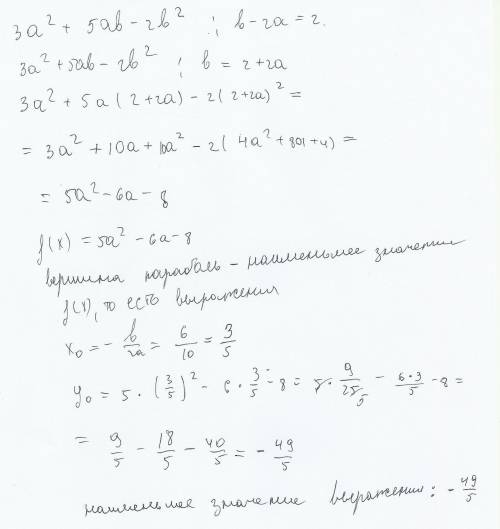 3a² + 5ab - 2b² ; b - 2a = 2.
3a² + 5ab - 2b² ; b = 2 + 2a
3a² + 5a(2 + 2a) - 2(2 + 2a)² =
= 3a² + 10a + 10a² - 2(4a² + 8a + 4) =
= 5a² - 6a - 8
f(x) = 5a² - 6a - 8
вершина параболь - наименьшее значении
f(x), то есть выражения
x₀ = - b/2a = 6/10 = 3/5
y₀ = 5 · (3/5)² - 6 · 3/5 - 8 = 5 · 9/25 - 6·3/5 - 8 =
= 9/5 - 18/5 - 40/5 = - 49/5
наименьшее значение выражения: - 49/5